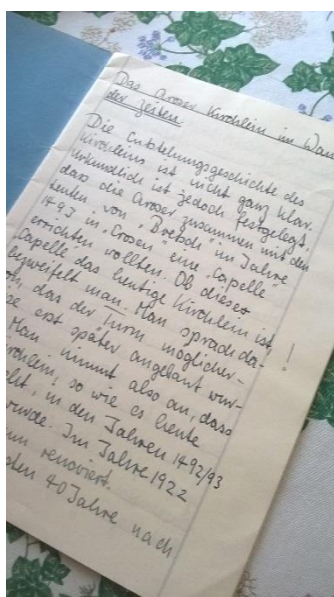 Das Aroser Kirchlein im Wan
der Zeiten.
Die Entstehungsgeschichte des
Kirchleins ist nicht ganz klar.
Urkundlich ist jedoch festgelegt,
dass die Aroser zusammen mit den
Leuten von "Bretsch" im Jahre
1493 in "Erosen" eine "Capelle"
errichten wollten. Ob dieses
Capelle das heutige Kirchlein ist,
bezweifelt man. Man sprach da-
das der Turm möglicher-
se erst später angebaut wur-
Man nimmt also an, dass
irchlein, so wie es heute
ht, in den Jahren 1492/93
wurde. Im Jahre 1922
renoviert.
40 Jahre nach